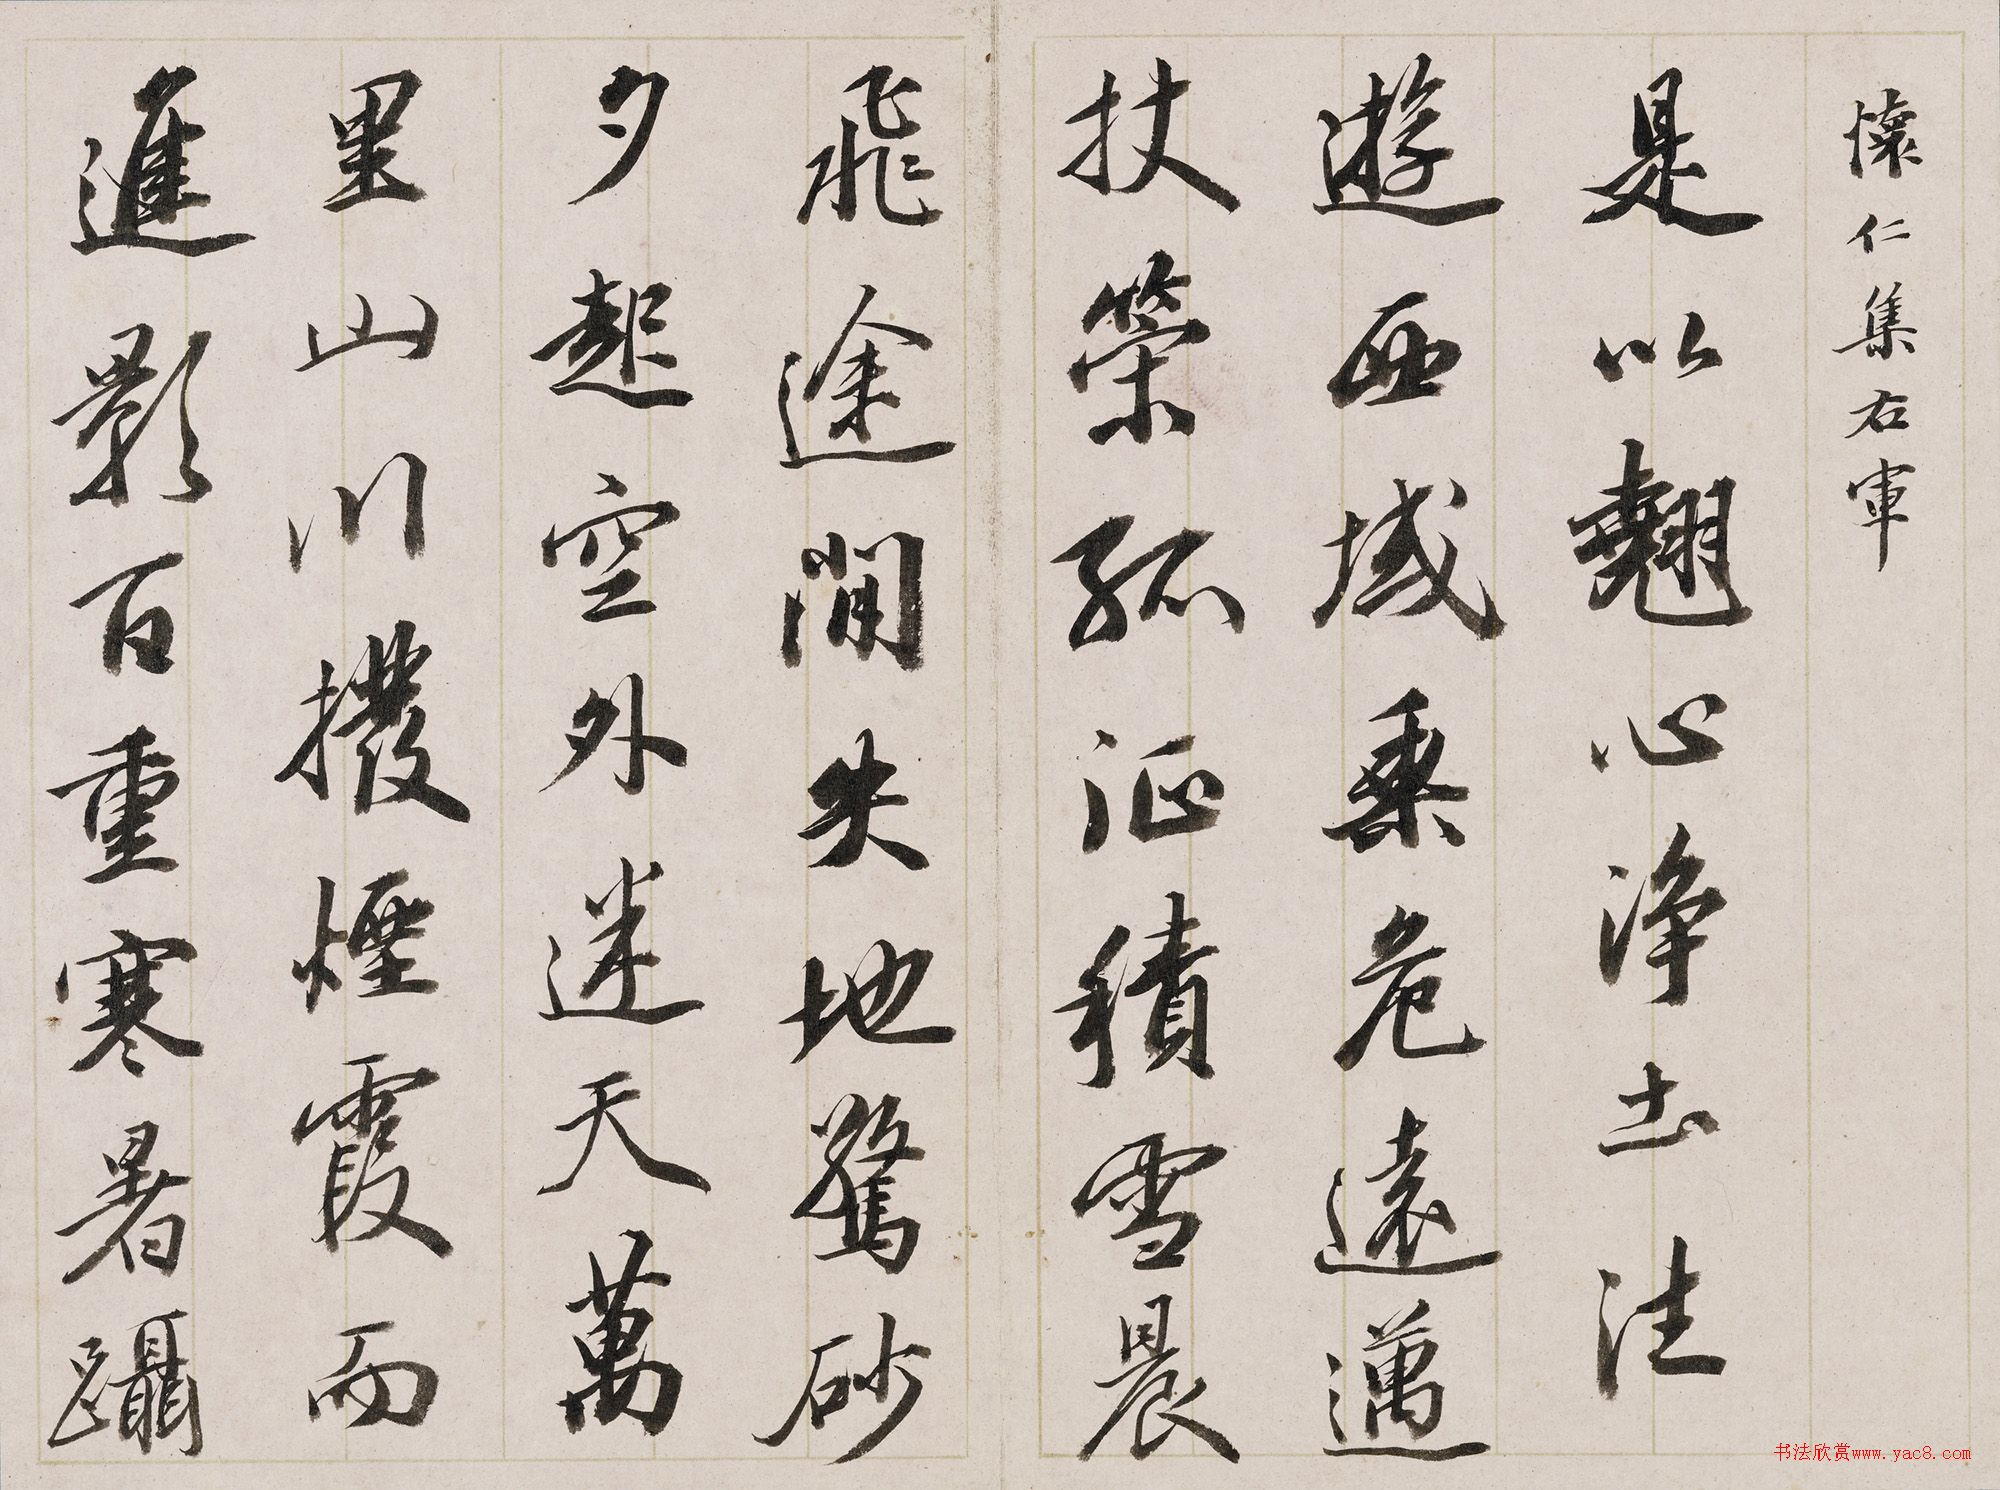 懷仁集右軍
是以翹心淨土法
遊西域乘危遠邁
扙策孤征積雪晨
飛途閒失地驚砂
夕起空外迷天萬
里山川撥煙霞而
進影百重寒暑躡
书法欣赏www.yac8.com